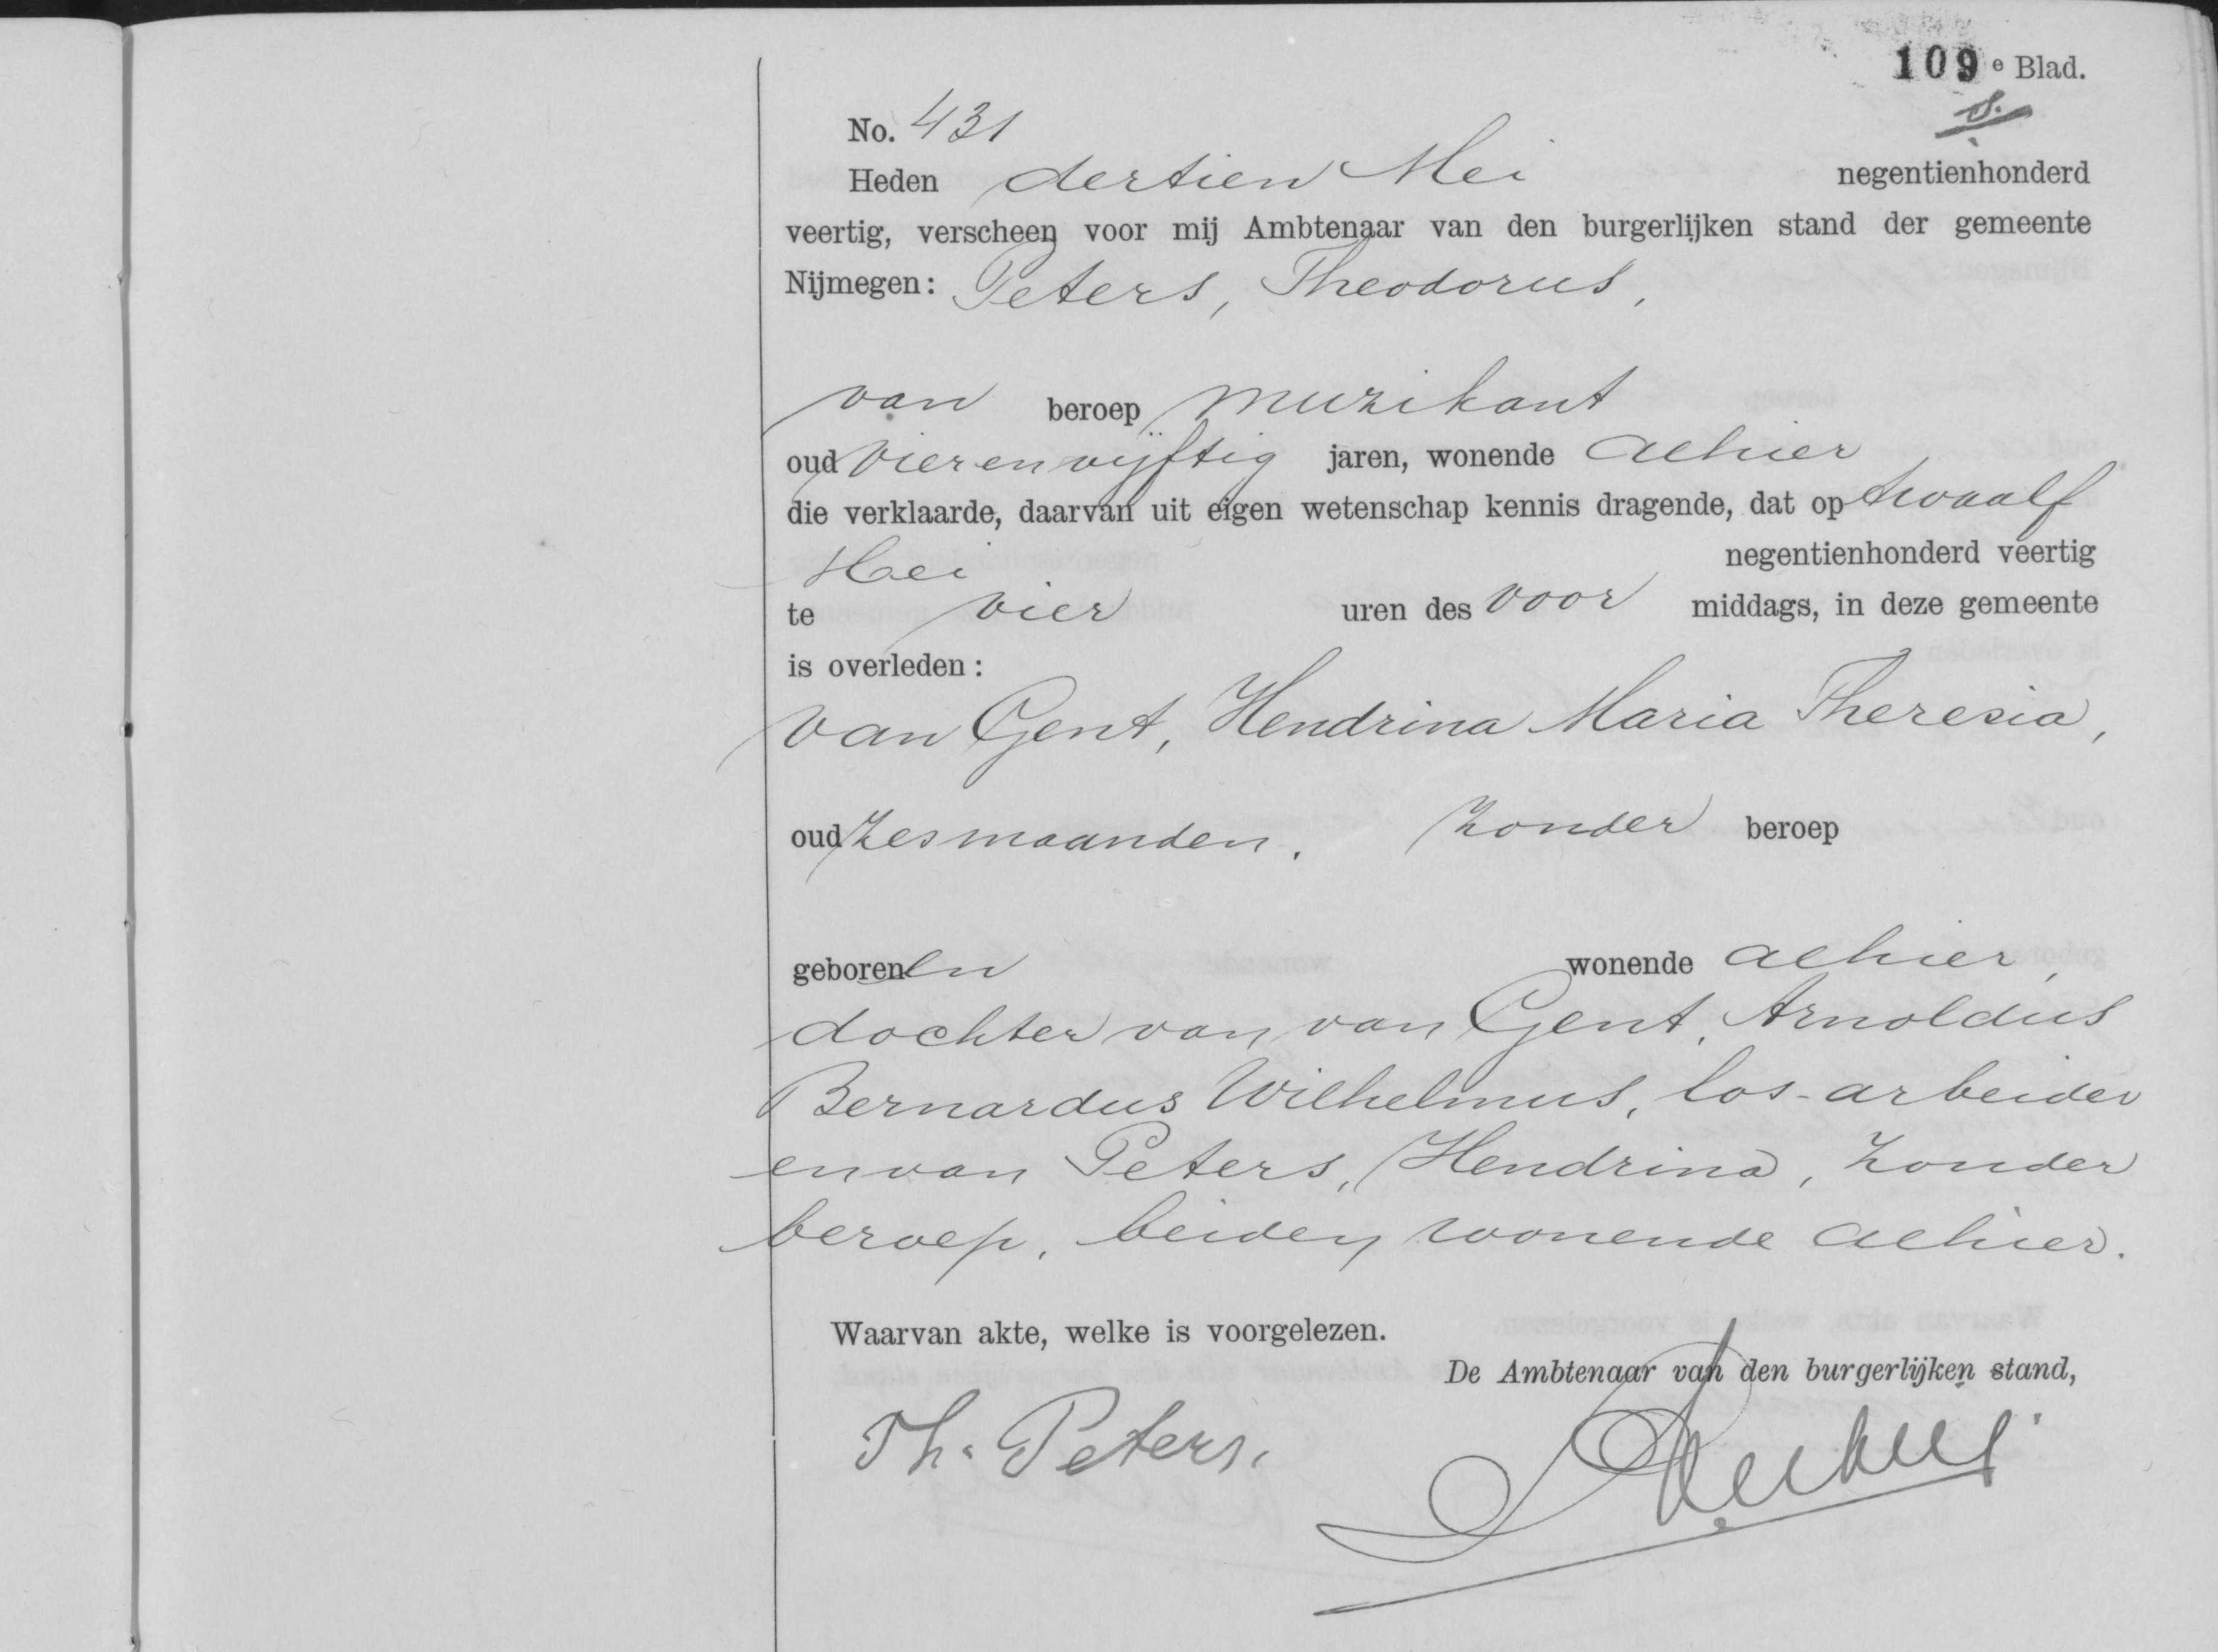 109e Blad.
No. 431
Heden dertien Mei negentienhonderd
veertig, verscheen voor mij Ambtenaar van den burgerlijken stand der gemeente
Nijmegen: Peters, Theodorus,
van beroep muzikant
oud vierenvijftig jaren, wonende alhier
die verklaarde, daarvan uit eigen wetenschap kennis dragende, dat op twaalf
Mei negentienhonderd veertig
te vier uren des voor middags, in deze gemeente
is overleden:
van Gent, Hendrina Maria Theresia,
oud zes maanden. zonder beroep
geboren en wonende alhier,
dochter van van Gent, Arnoldus
Bernardus Wilhelmus, los-arbeider
en van Peters, Hendrina, zonder
beroep, beiden wonende alhier.
Waarvan akte, welke is voorgelezen.
De Ambtenaar van den burgerlijken stand,
Th. Peters.